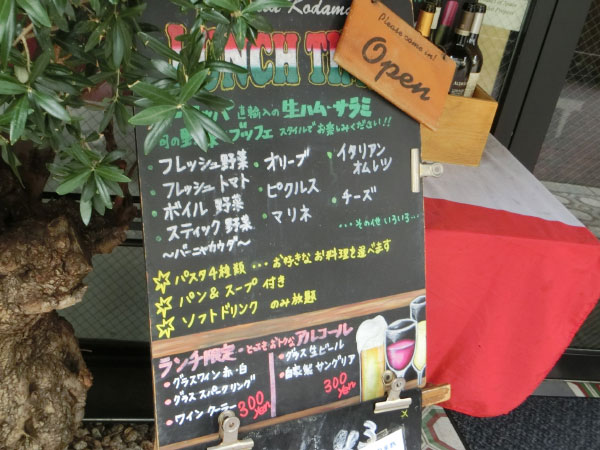 Kodama
LUNCH TIME
Please come in!
Open
直輸入の 生ハム・サラミ
旬の野菜 ブッフェ スタイルでお楽しみください!!
・フレッシュ野菜
・フレッシュ トマト
・ボイル 野菜
・スティック 野菜
〜バーニャカウダ〜
・オリーブ
・ピクルス
・マリネ
・イタリアン
オムレツ
・チーズ
・・・その他 いろいろ・・・
☆ パスタ4種類 ・・・ お好きなお料理を選べます
☆ パン & スープ 付き
☆ ソフトドリンク のみ放題
ランチ限定・とってもおトクなアルコール
・グラスワイン 赤・白
・グラス スパークリング
・ワイン クーラー
300
・グラス 生ビール
・自家製 サングリア
300